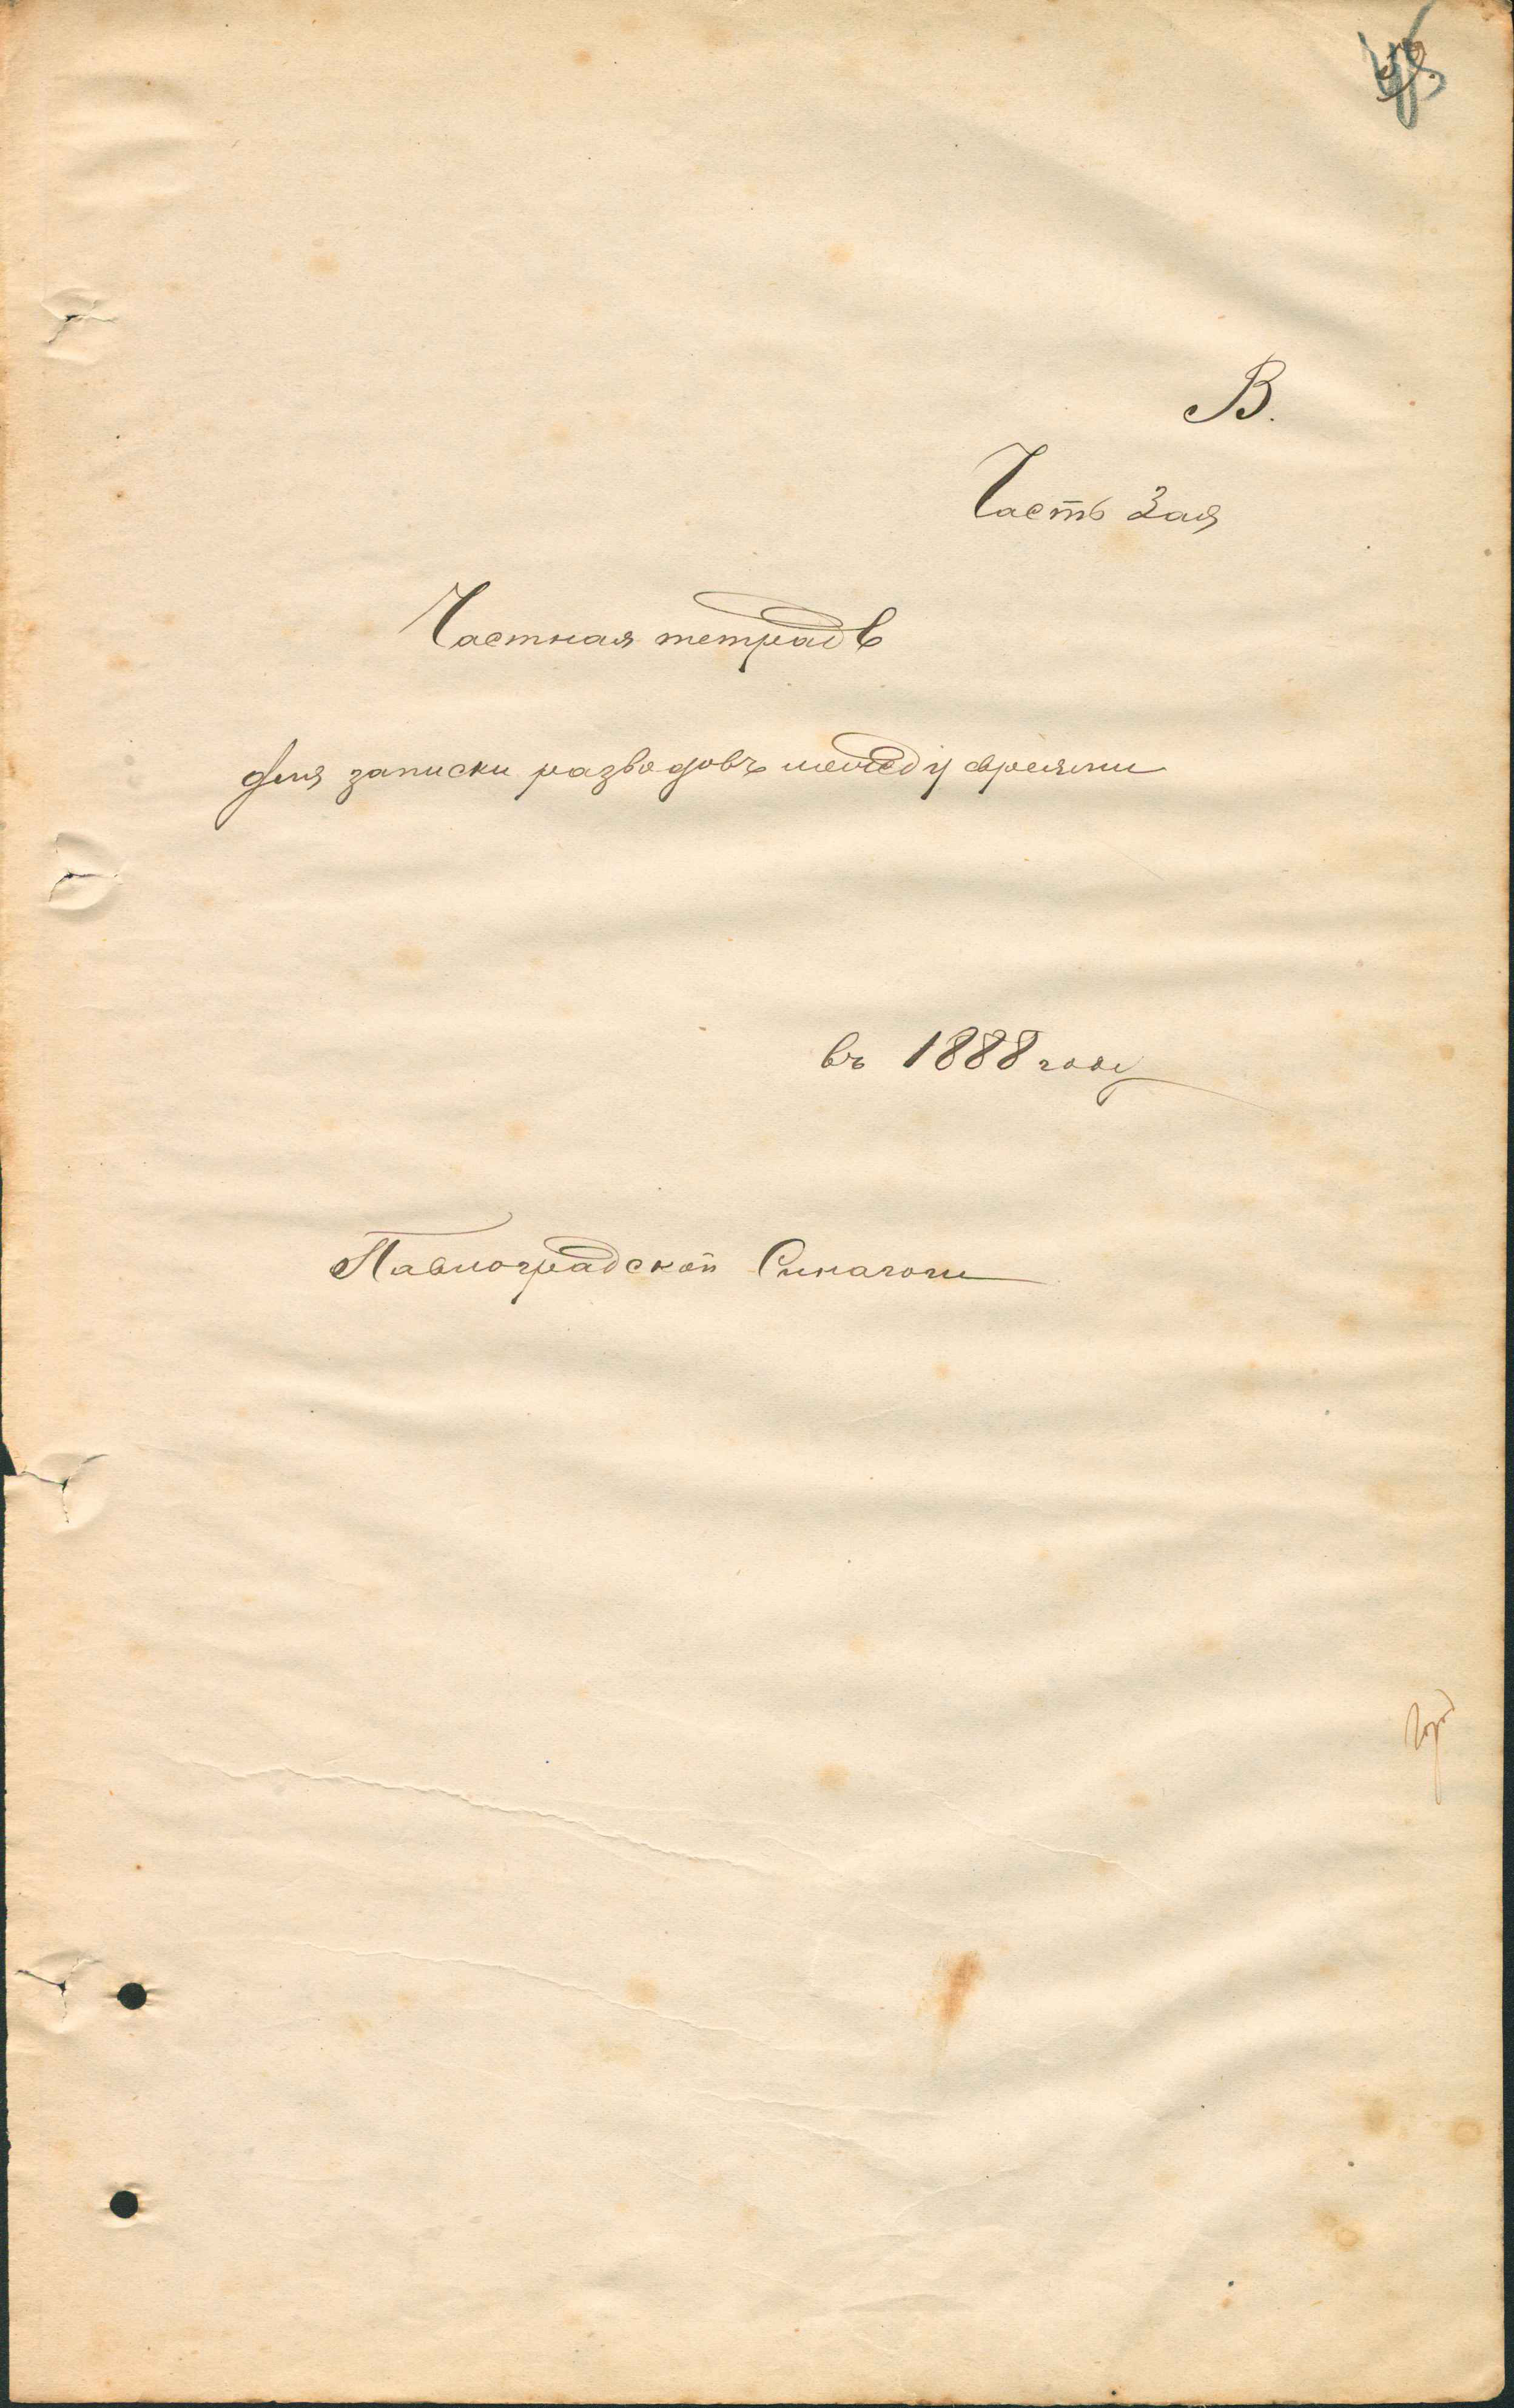 В.
Часть 3ая
Частная тетрадь
для записки разводовъ между евреями
въ 1888 году
Павлоградской Синагоги